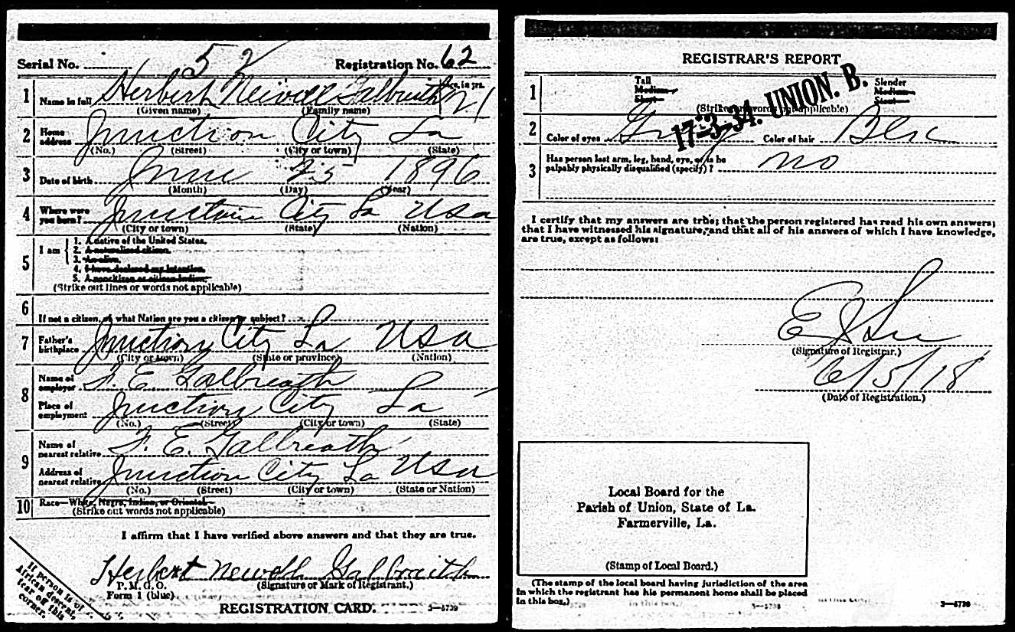 Serial No. 52 Registration No. 62
1 Name in full Herbert Newell Galbraith Age, in yrs. 21
(Given name) (Family name)
2 Home address Junction City La
(No.) (Street) (City or town) (State)
3 Date of birth June 23 1896
(Month) (Day) (Year)
4 Where were you born? Junction City La USA
(City or town) (State) (Nation)
5 I am
1. A native of the United States.
2. A naturalized citizen.
3. An alien.
4. I have declared my intention.
5. A noncitizen or citizen Indian.
(Strike out lines or words not applicable)
6 If not a citizen, of what Nation are you a citizen or subject?
7 Father's birthplace Junction City La USA
(City or town) (State or province) (Nation)
8 Name of employer F. E. Galbreath
Place of employment Junction City La
(No.) (Street) (City or town) (State)
9 Name of nearest relative F. E. Galbreath
Address of nearest relative Junction City La USA
(No.) (Street) (City or town) (State or Nation)
10 Race—White, Negro, Indian, or Oriental.
(Strike out words not applicable)
I affirm that I have verified above answers and that they are true.
Herbert Newell Galbraith
P. M. G. O.
Form 1 (blue) (Signature or Mark of Registrant.)
REGISTRATION CARD. 3—5739
If person is of African descent, tear off this corner.
REGISTRAR'S REPORT
17-3-34. UNION. B.
1 Tall Medium Short Slender Medium Stout
(Strike out words not applicable)
2 Color of eyes Color of hair
3 Has person lost arm, leg, hand, eye, or is he palpably physically disqualified (specify)? no
I certify that my answers are true; that the person registered has read his own answers;
that I have witnessed his signature, and that all of his answers of which I have knowledge,
are true, except as follows:
(Signature of Registrar.)
6/5/18
(Date of Registration.)
Local Board for the
Parish of Union, State of La.
Farmerville, La.
(Stamp of Local Board.)
(The stamp of the local board having jurisdiction of the area
in which the registrant has his permanent home shall be placed
in this box.) 3—5739